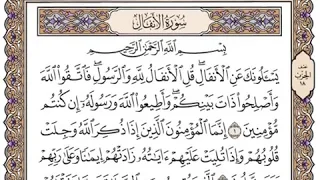 سُورَةُ الأَنفَالِ
بِسْمِ اللَّهِ الرَّحْمَٰنِ الرَّحِيمِ
يَسْـَٔلُونَكَ عَنِ الْأَنفَالِ ۖ قُلِ الْأَنفَالُ لِلَّهِ وَالرَّسُولِ ۖ فَاتَّقُوا۟ اللَّهَ
وَأَصْلِحُوا۟ ذَاتَ بَيْنِكُمْ ۖ وَأَطِيعُوا۟ اللَّهَ وَرَسُولَهُۥٓ إِن كُنتُم
مُّؤْمِنِينَ ١ إِنَّمَا الْمُؤْمِنُونَ الَّذِينَ إِذَا ذُكِرَ اللَّهُ وَجِلَتْ
قُلُوبُهُمْ وَإِذَا تُلِيَتْ عَلَيْهِمْ ءَايَٰتُهُۥ زَادَتْهُمْ إِيمَٰنًا وَعَلَىٰ رَبِّهِمْ